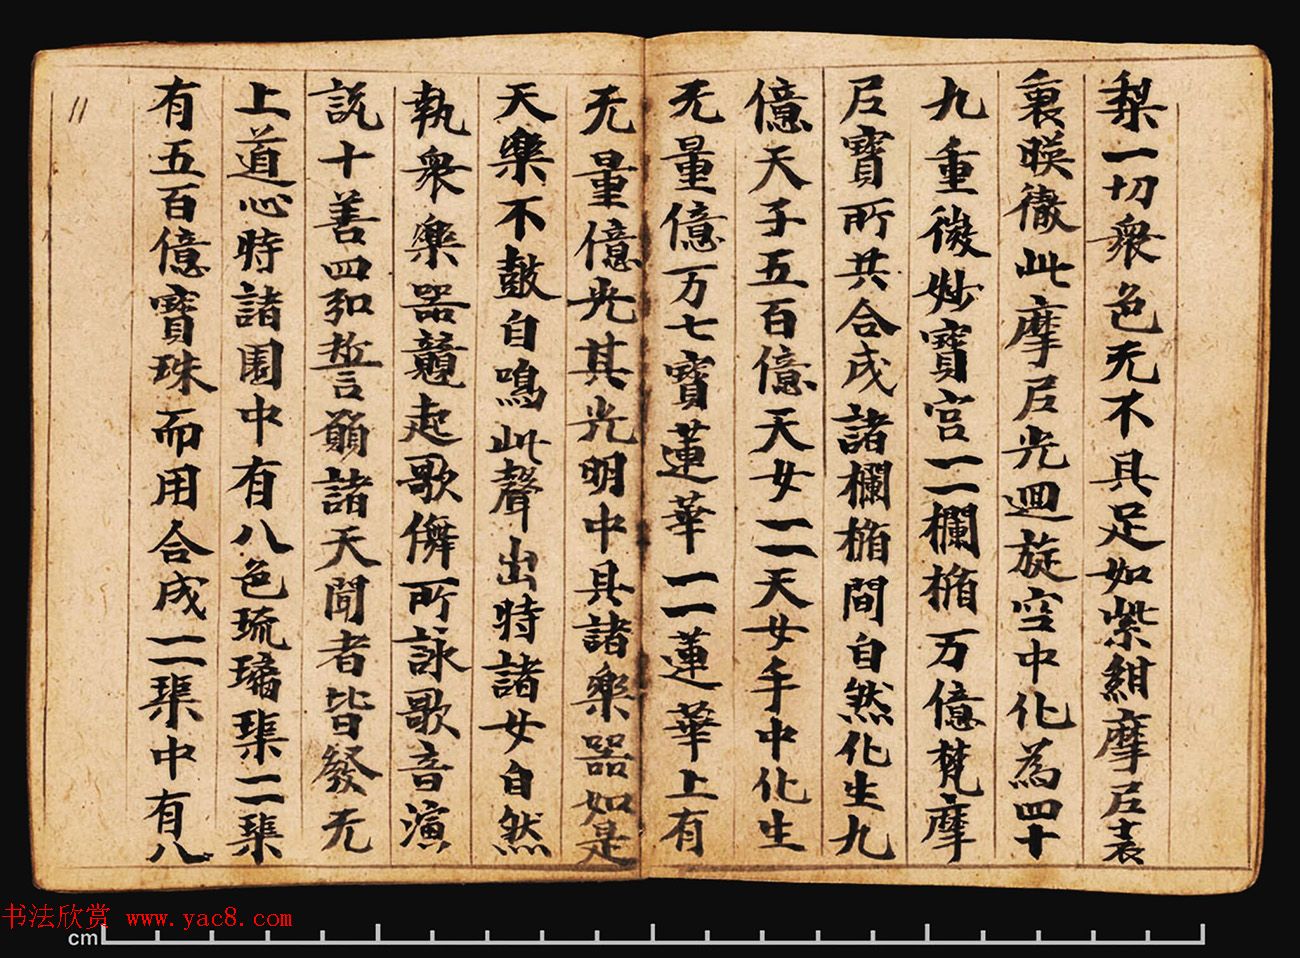 梨一切衆色无不具足如紫紺摩尼表
裏暎徹此摩尼光迴旋空中化為四十
九重微妙寶宮一一欄楯万億梵摩
尼寶所共合成諸欄楯間自然化生九
億天子五百億天女一一天女手中化生
无量億万七寶蓮華一一蓮華上有
无量億光其光明中具諸樂器如是
天樂不鼓自鳴此聲出時諸女自然
執衆樂器競起歌儛所詠歌音演
説十善四弘誓願諸天聞者皆發无
上道心時諸園中有八色琉璃渠一一渠
有五百億寶珠而用合成一一渠中有八
11
书法欣赏 www.yac8.com
cm